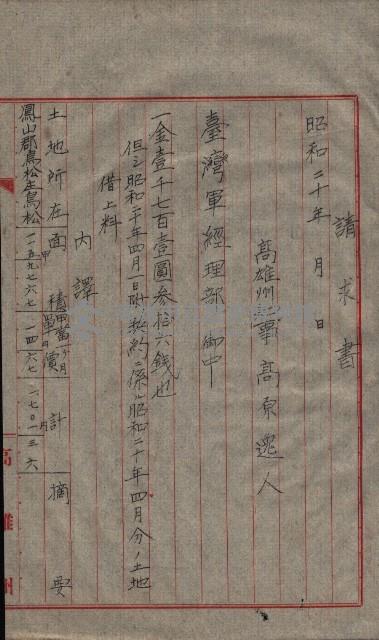 請求書
昭和二十年　月　日
高雄州知事高原逸人
臺灣軍經理部　御中
一金壹千七百壹圓參拾六錢也
但シ昭和二十年四月一日附契約ニ係ル昭和二十年四月分ノ土地
借上料
內譯
土地所在　面積　單價　計　摘要
鳳山郡鳥松庄鳥松　一一五九七六七　一四六七　一七〇一三六
高雄州